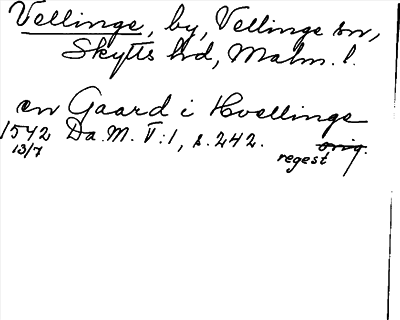 Vellinge, by, Vellinge sn,
Skytts hd, Malm. l.
en Gaard i Hvellinge
1542 Da. M. V:1, s. 242. orig.
13/7 regest